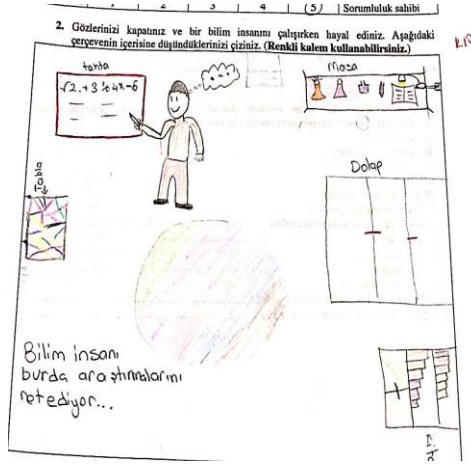 1 2 3 4 (5) Sorumluluk sahibi
2. Gözlerinizi kapatınız ve bir bilim insanını çalışırken hayal ediniz. Aşağıdaki
çerçevenin içerisine düşündüklerinizi çiziniz. (Renkli kalem kullanabilirsiniz.)
tahta
√2.+3%4x-6
Masa
Tablo
Dolap
Bilim insanı
burda araştırmalarını
netediyor...